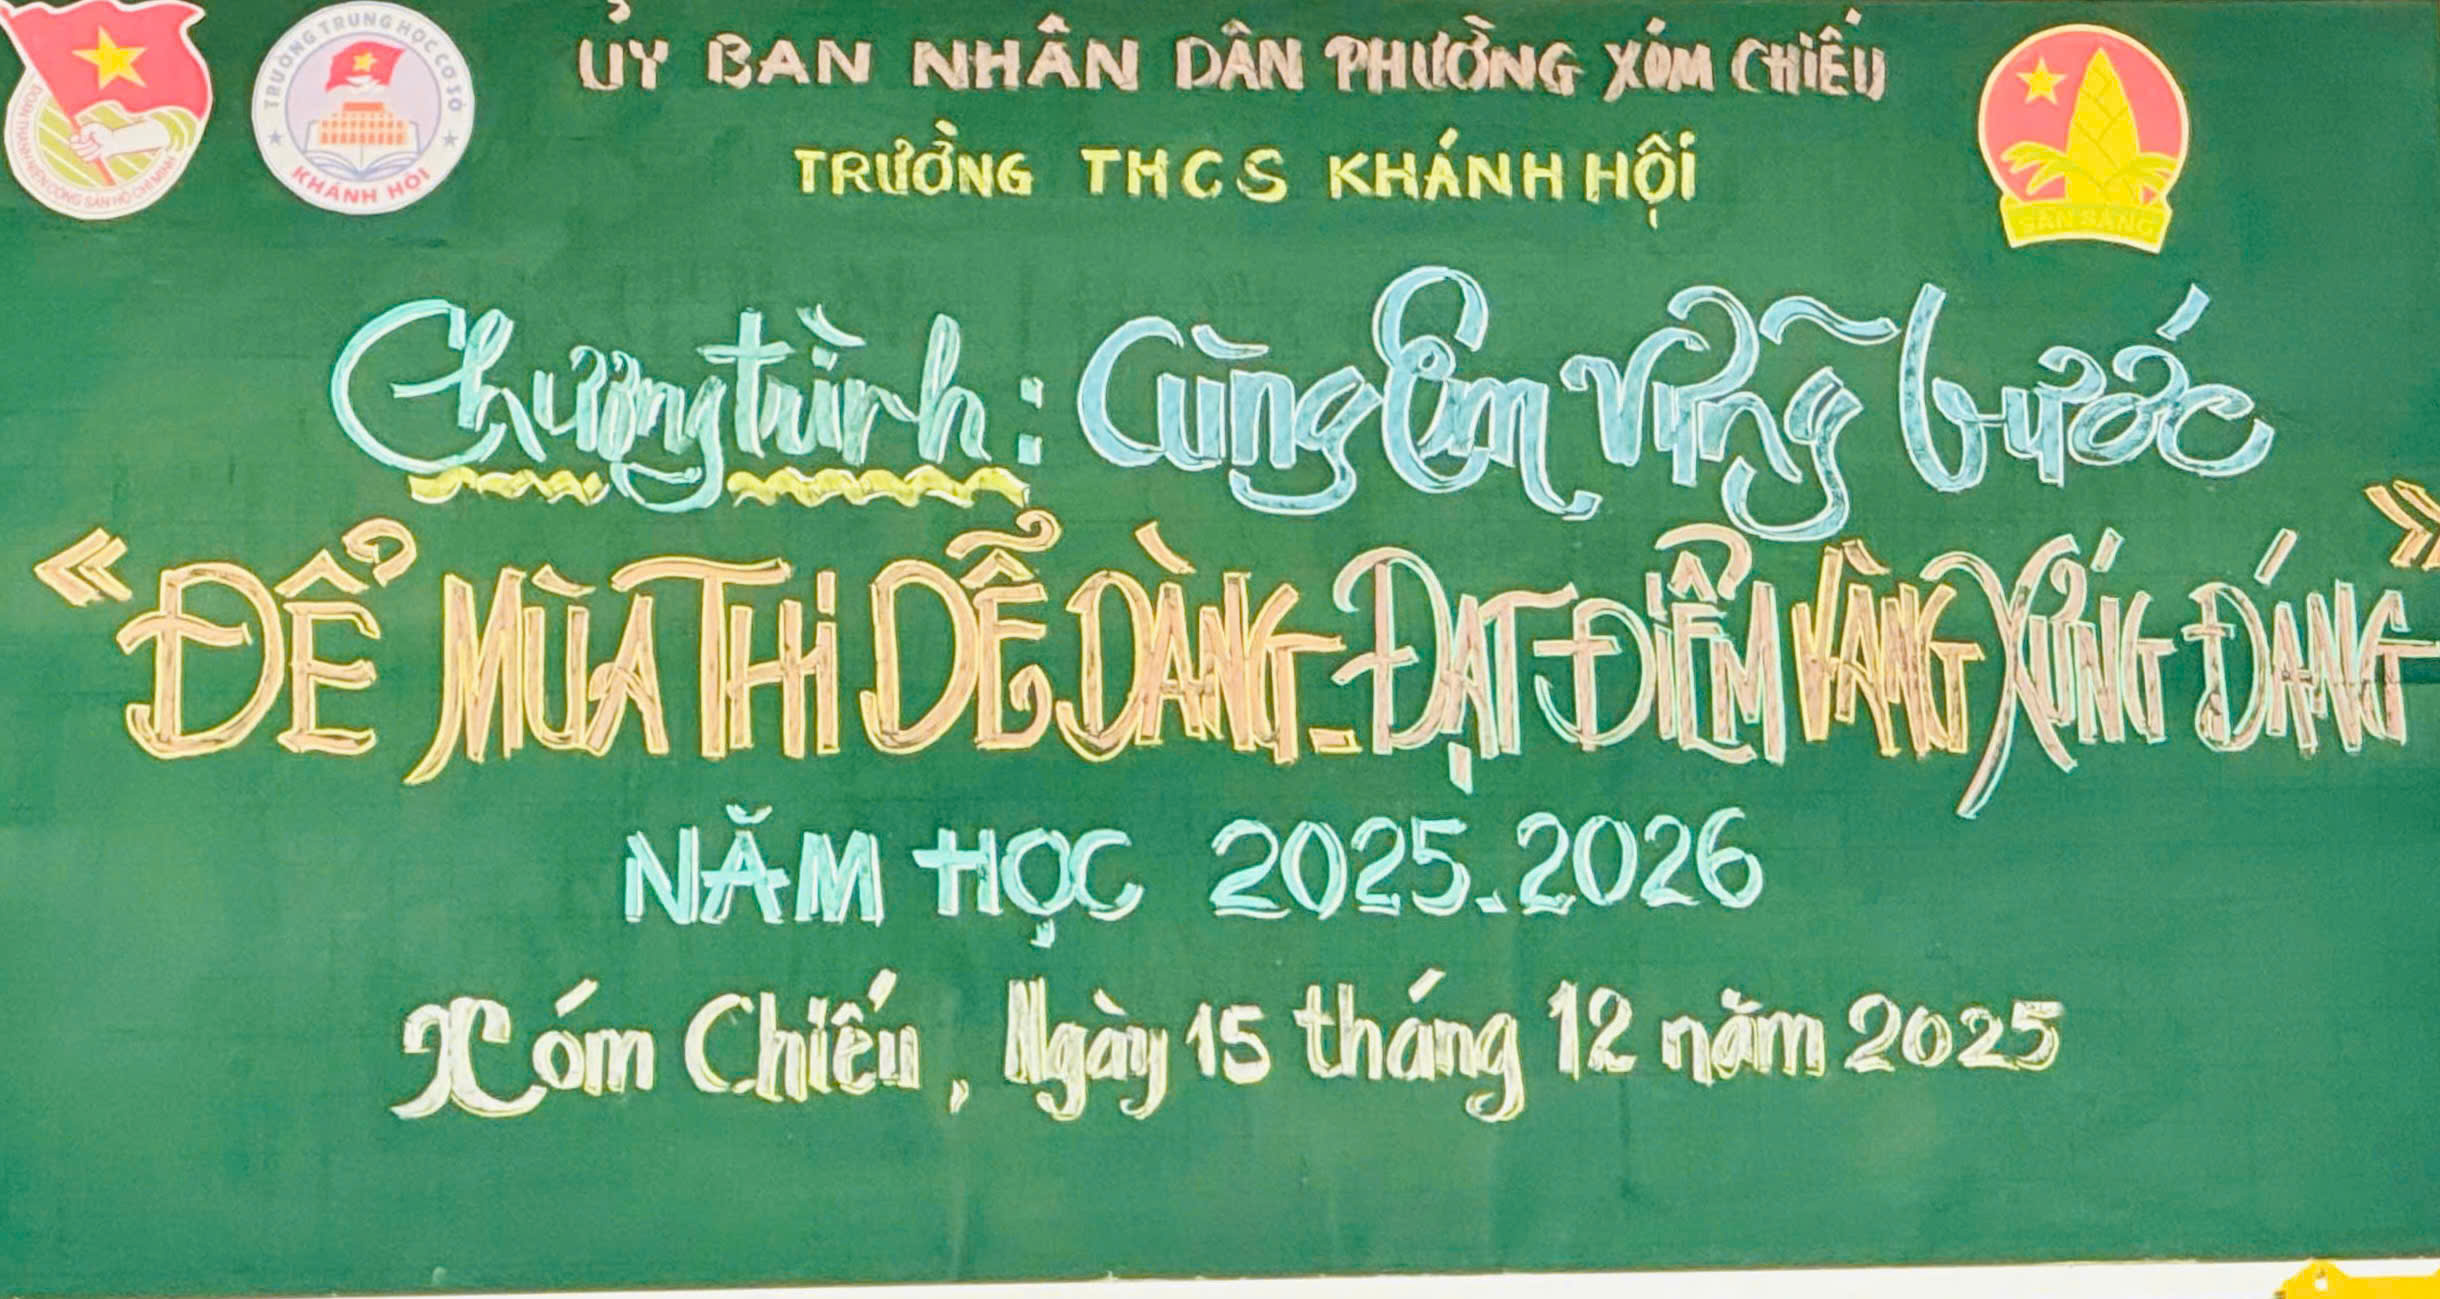 ỦY BAN NHÂN DÂN PHƯỜNG XÓM CHIẾU
TRƯỜNG THCS KHÁNH HỘI
ĐOÀN THANH NIÊN CỘNG SẢN HỒ CHÍ MINH
TRƯỜNG TRUNG HỌC CƠ SỞ
KHÁNH HỘI
SẴN SÀNG
Chương trình: Cùng Em vững bước
“ĐỂ MÙA THI DỄ DÀNG - ĐẠT ĐIỂM VÀNG XỨNG ĐÁNG”
NĂM HỌC 2025-2026
Xóm Chiếu, Ngày 15 tháng 12 năm 2025